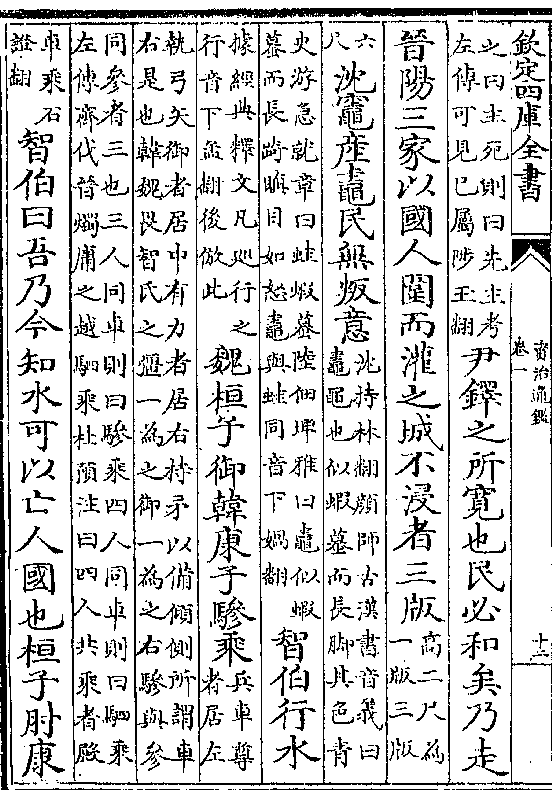 欽定四庫全書
資治通鑑
卷一
之曰主死則曰先主考
左傳可見已屬陟玉翻
尹鐸之所寛也民必和矣乃走
晉陽三家以國人圍而灌之城不浸者三版
高二尺爲
一版三版
六
尺
沈竈産鼃民無叛意
沈持林翻顔師古漢書音義曰
鼃黽也似蝦蟇而長脚其色青
史游急就章曰蛙蝦蟇陸佃埤雅曰鼃似蝦
蟇而長踦瞋目如怒鼃與蛙同音下媧翻
智伯行水
據經典釋文凡巡行之
行音下孟翻後倣此
魏桓子御韓康子驂乗
兵車尊
者居左
執弓矢御者居中有力者居右持矛以備傾側所謂車
右是也韓魏畏智氏之彊一爲之御一爲之右驂與參
同參者三也三人同車則曰驂乗四人同車則曰駟乗
左傳齊伐晉燭庸之越駟乗杜預注曰四人共乗者殿
車乗石
證翻
智伯曰吾乃今知水可以亡人國也桓子肘康